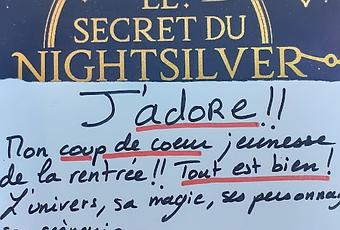 LE
SECRET DU
NIGHTSILVER
J'adore !!
Mon coup de coeur jeunesse
de la rentrée !! Tout est bien !
L'univers, sa magie, ses personnag